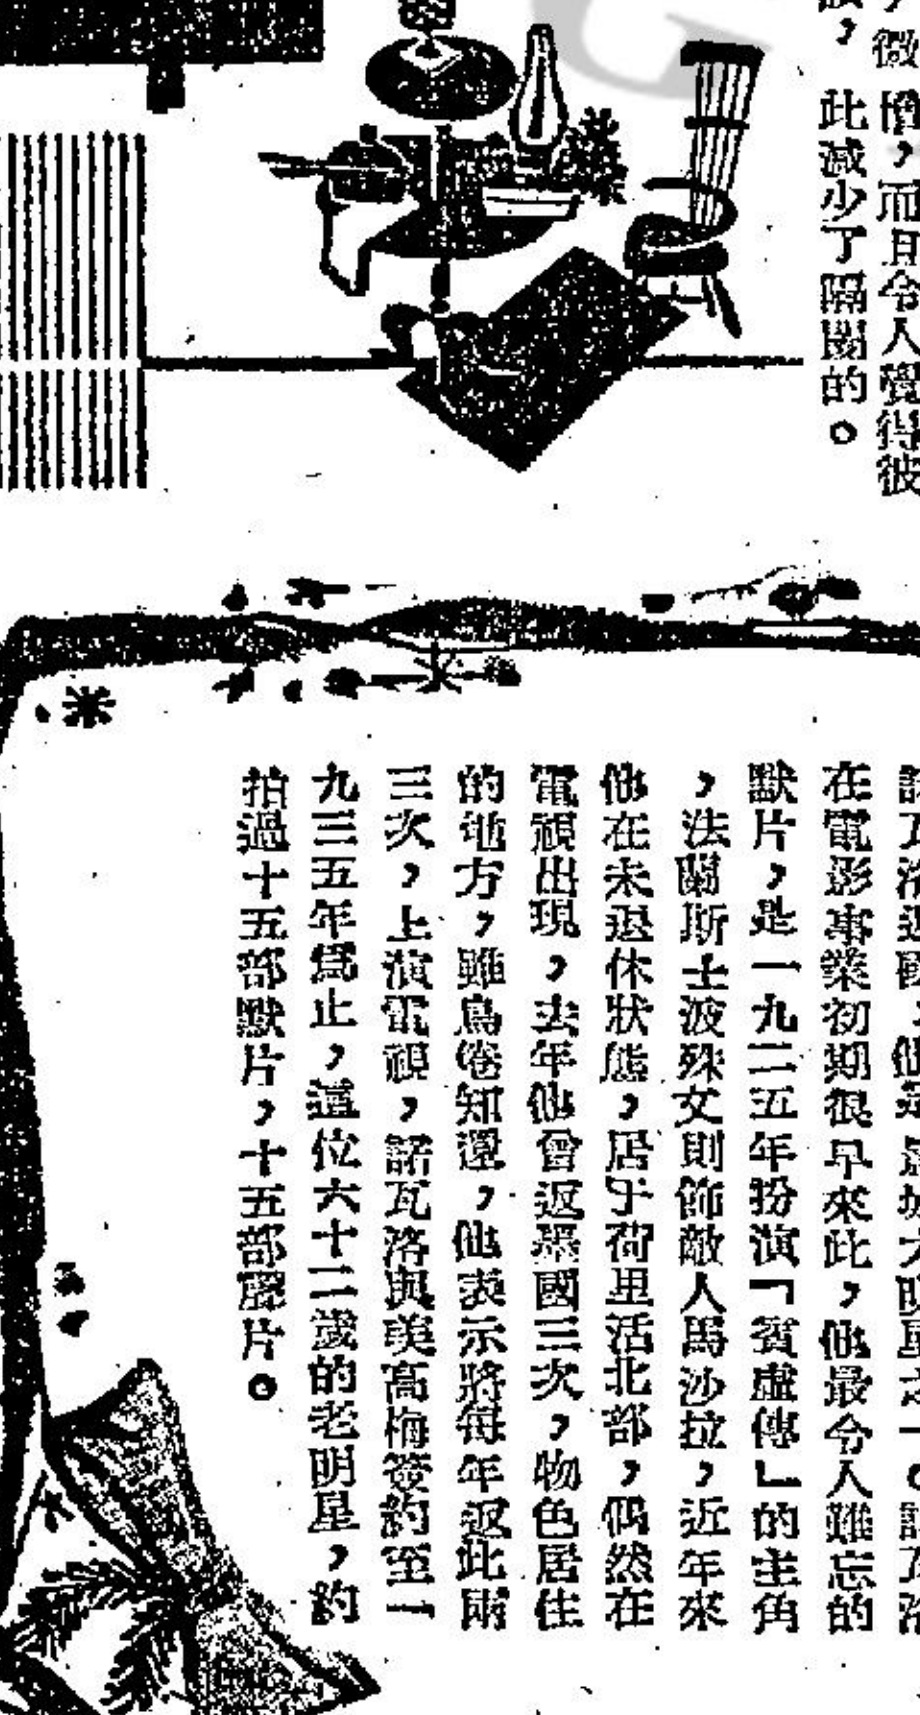 微
憎，而且令人覺得彼
此減少了隔閡的。
在電影事業初期很早來此，他最令人難忘的
默片，是一九二五年扮演「賓虛傳」的主角
，法蘭斯士波殊文則飾敵人馬沙拉，近年來
他在未退休狀態，居乎荷里活北部，偶然在
電視出現，去年他曾返墨國三次，物色居住
的地方，雖鳥倦知還，他表示將每年返此兩
三次，上演電視，諾瓦洛與美高梅簽約至一
九三五年爲止，這位六十二歲的老明星，約
拍過十五部默片，十五部聲片。